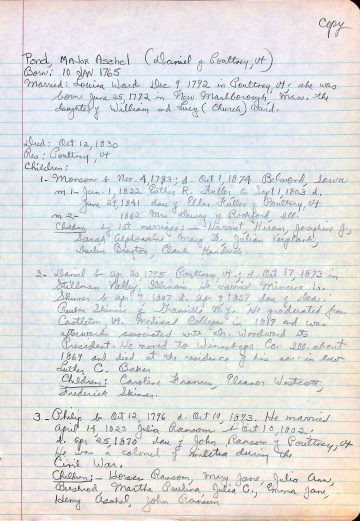 Copy
Pond, Major Asahel (Daniel of Poultney, Vt)
Born: 10 JAN 1765
Married: Louisa Ward Dec 9, 1792 in Poultney, Vt. she was
born June 25, 1772 in New Marlborough, Mass. the
daughter of William and Lucy (Church) Ward.
Died: Oct 12, 1830
Res: Poultney, Vt
Children:
1- Monson b Nov. 4, 1793; d. Oct 1, 1874 Belmond, Iowa
m 1- Jan. 1, 1822 Esther R. Fuller b Sept 1, 1803 d.
June 29, 1841 dau of Fuller of Poultney, Vt
m 2- 1862 Mrs. Dewey of Rockford, Ill.
Children by 1st marriage: Harriet, Hiram, Josephine J.,
Sarah Alphonsine, Mary F., Julian
Burlin Brayton, Clark
2- Daniel b Apr 30, 1795 Poultney, Vt; d. Oct 17, 1873 in
Stillman Valley, Illinois. He married Minerva L.
Skinner b Apr 7, 1807 d. Apr 9, 1857 dau of Dea.
Reuben Skinner of Granville N.Y. He graduated from
Castleton, Vt. Medical College in 1819 and was
afterwards associated with Dr. Woodward its
President. He moved to Winnebago Co. Ill. about
1869 and died at the residence of his son in law
Luther C. Baker
Children: Caroline Frances, Eleanor Westcott,
Frederick Skinner.
3- Philip b Oct 12, 1796 d. Oct 10, 1893. He married
April 14 1823 Julia Ranson b Oct 10, 1802;
d. Apr 25, 1870 dau of John Ranson of Poultney, Vt
He was a colonel of militia during the
Civil War.
Children: Horace Ranson, Mary Jane, Julia Ann,
Bushrod, Martha Paulina, Julia C., Emma Jane,
Henry Asahel, John Ranson